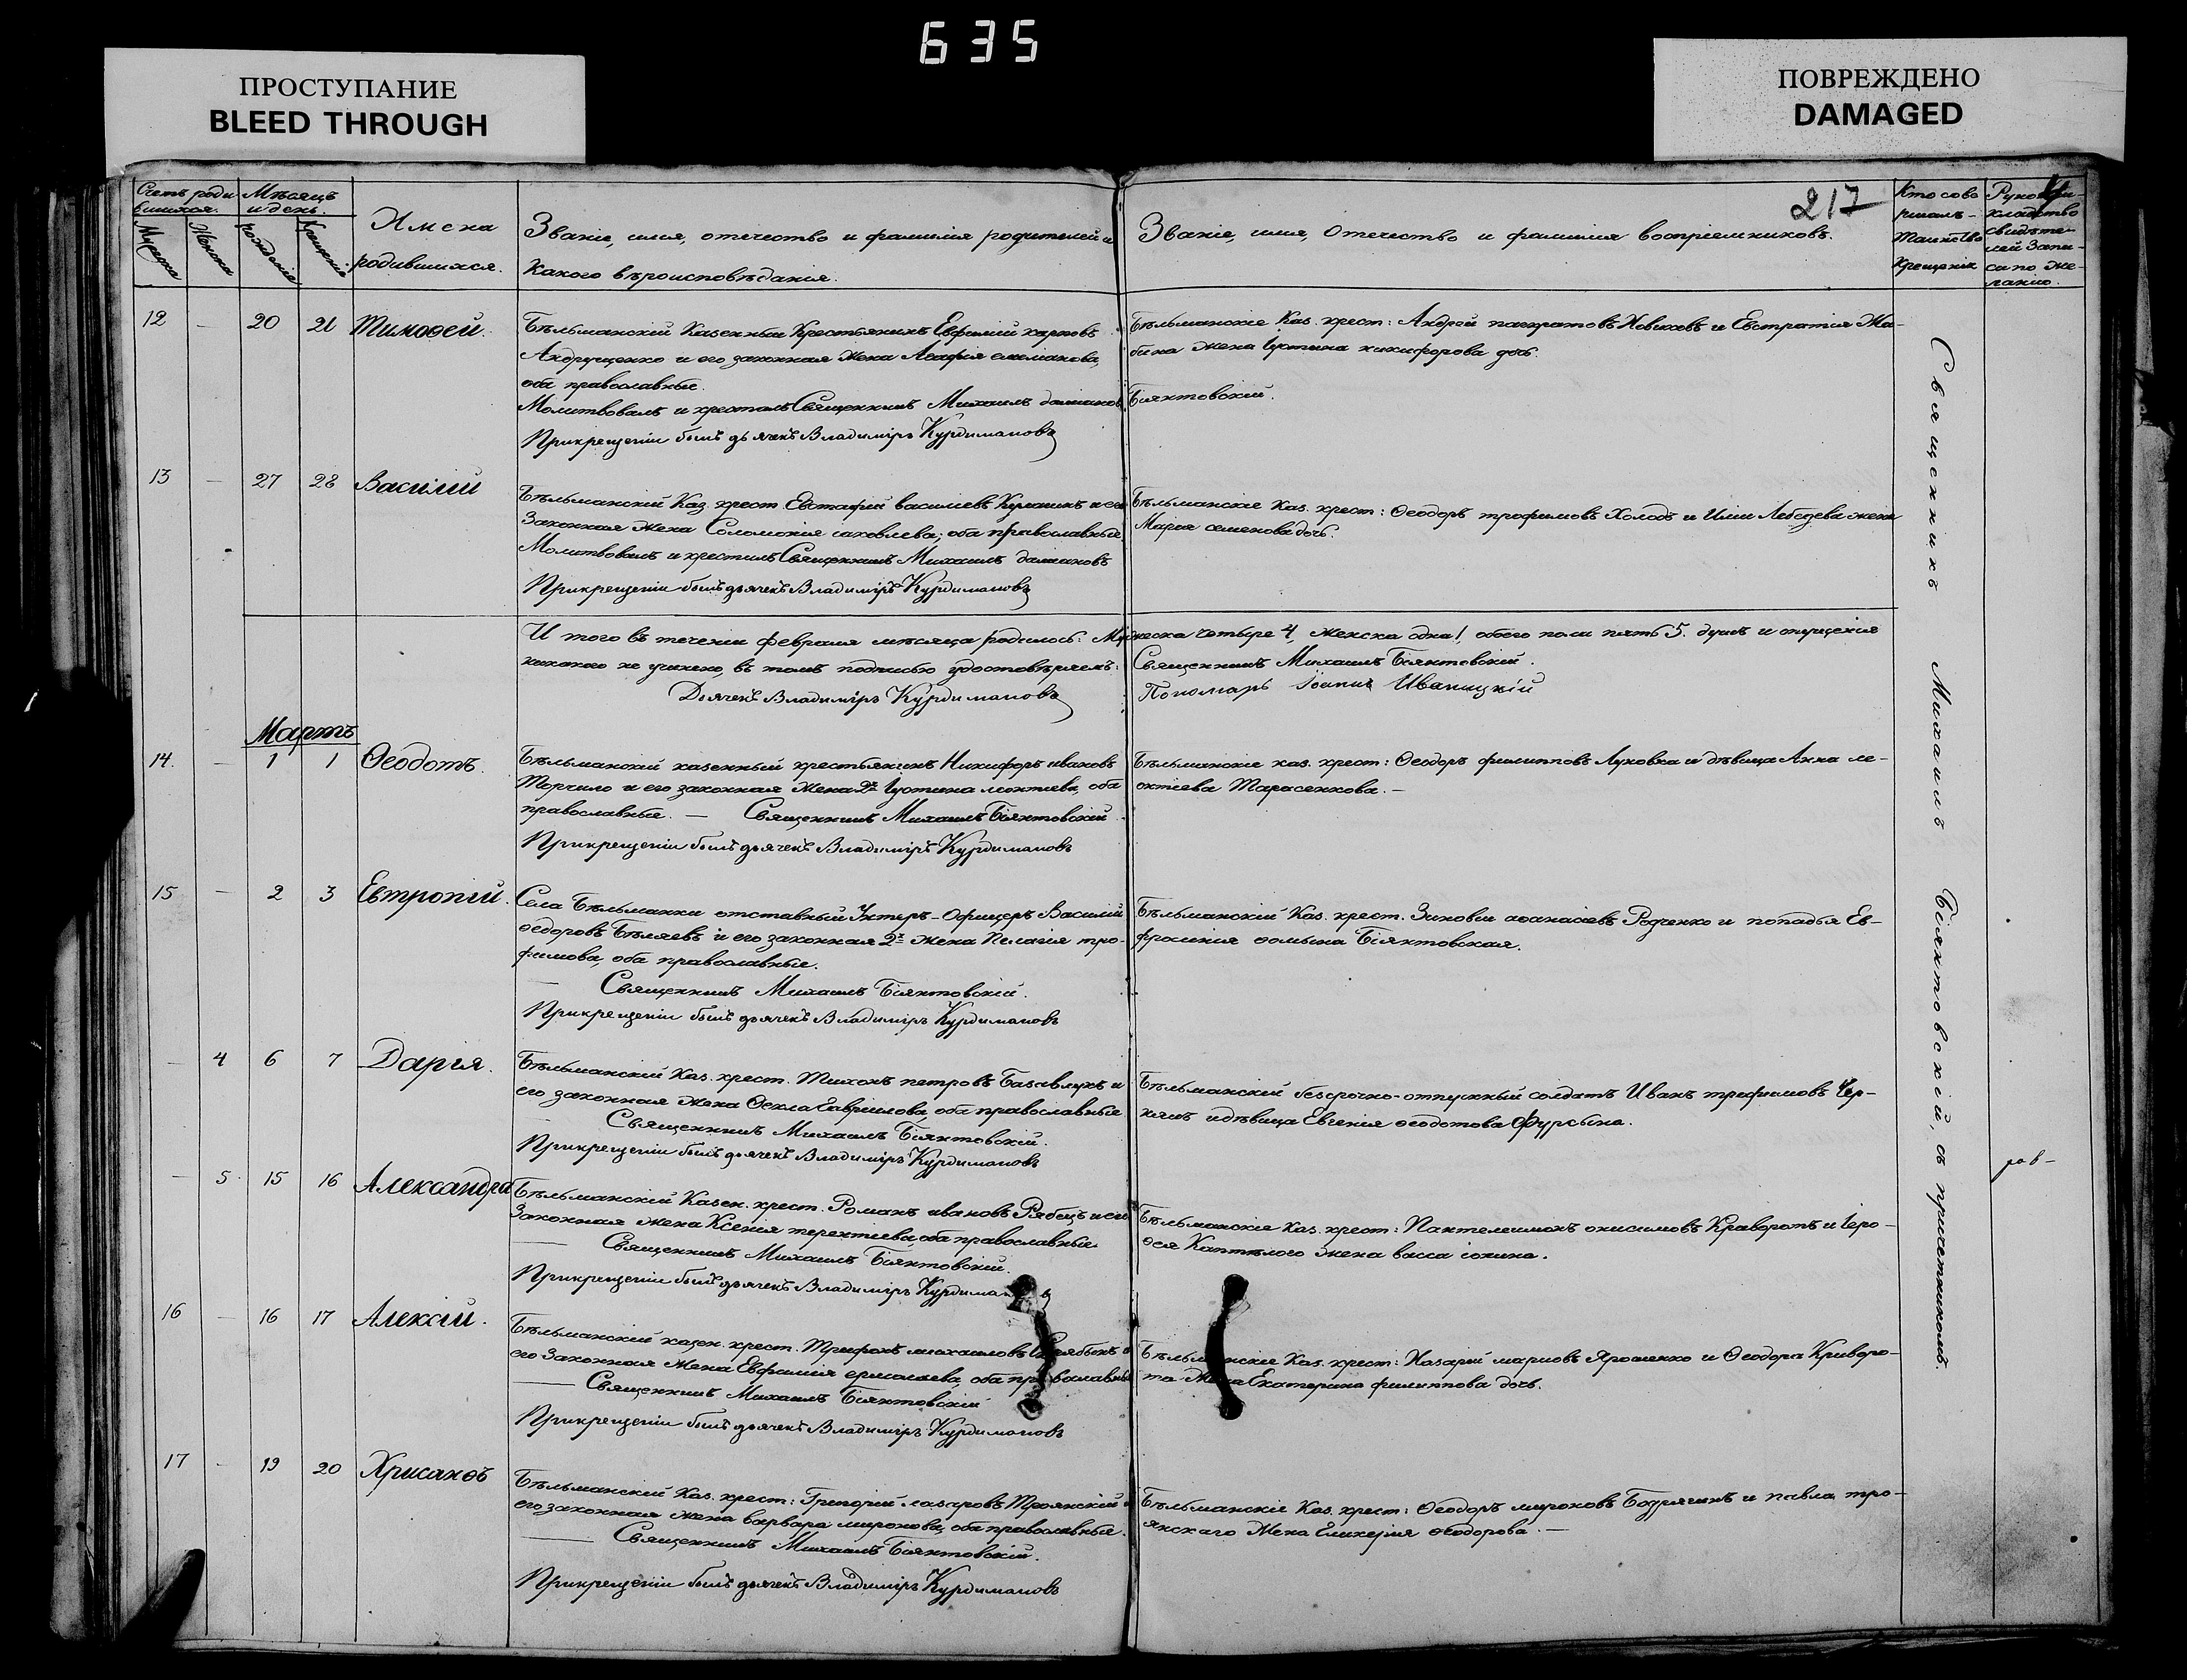 635
ПРОСТУПАНИЕ
BLEED THROUGH
ПОВРЕЖДЕНО
DAMAGED
217
Счетъ роди
вшихся.
Мѣсяцъ
и день.
Имена
родившихся.
Званіе, имя, отечество и фамилія родителей и
какого вѣроисповѣданія.
Званіе, имя, Отечество и фамилія воспріемниковъ.
Кто сове
ршалъ
таинство
крещенія
Рукопри-
кладство
свидѣте-
лей запи-
си по же-
ланію.
Мужеска
Женска
рожденія
Крещенія
12 – 20 21 Тимоѳей.
Бѣльманскій Казенный Крестьянинъ Евфимій карповъ
Андрущенко и его законная жена Агафія
оба православные.
Молитвовалъ и крестилъ Священникъ Михаилъ даміановъ Біянтовскій.
При крещеніи былъ дьячекъ Владиміръ Курдимановъ
Бѣльманскіе Каз. крест: Андрей панкратовъ Новиковъ и Евстратія Жа-
бина жена Іустина никифорова дочь.
13 – 27 28 Василій
Бѣльманскій Каз. крест. Евстафій василіевъ и его
Законная жена Соломонія іаковлева; оба православные.
Молитвовалъ и крестилъ Священникъ Михаилъ даміановъ
При крещеніи былъ дьячекъ Владиміръ Курдимановъ
Бѣльманскіе Каз. крест: Ѳеодоръ трофимовъ Холодъ и Иліи Лебедева жена
Марія семенова дочь.
И того въ теченіи февраля мѣсяца родилось: Мужеска четыре 4, женска одна 1, обоего пола пять 5. душъ и опущенія
никакого не учинено, въ томъ подписью удостовѣряемъ: Священникъ Михаилъ Біянтовскій.
Дьячекъ Владиміръ Курдимановъ
Пономарь Іоаннъ Иваницкій
Мартъ
14. – 1 1 Ѳеодотъ.
Бѣльманскій казенный крестьянинъ Никифоръ ивановъ
Торчило и его законная жена 2я Іустина леонтіева, оба
православные. — Священникъ Михаилъ Біянтовскій
При крещеніи былъ дьячекъ Владиміръ Курдимановъ
Бѣльманскіе каз. крест: Ѳеодоръ филипповъ Луковка и дѣвица Анна ле-
онтіева Тарасенкова. –
15 – 2 3 Евтропій.
Села Бѣльманки отставный Унтеръ-Офицеръ Василій
ѳедоровъ Бѣляевъ и его законная 2я жена Пелагія тро-
фимова, оба православные.
Священникъ Михаилъ Біянтовскій.
При крещеніи былъ дьячекъ Владиміръ Курдимановъ
Бѣльманскій Каз. крест. Зиновій аѳанасіевъ Родченко и попадья Ев-
фросинія ѳомина Біянтовская.
– 4 6 7 Дарія.
Бѣльманскій Каз. крест. Тихонъ петровъ Базавлукъ и
его законная жена Ѳекла Гавриилова, оба православные
Священникъ Михаилъ Біянтовскій.
При крещеніи былъ дьячекъ Владиміръ Курдимановъ
Бѣльманскій безсрочно-отпускный солдатъ Иванъ трофимовъ Чер-
и дѣвица Евгенія ѳеодотова Фурсина.
– 5 15 16 Александра
Бѣльманскій Казен. крест. Романъ ивановъ Рябецъ и его
Законная жена Ксенія терентіева, оба православные
Священникъ Михаилъ Біянтовскій.
При крещеніи былъ дьячекъ Владиміръ Курдимановъ
Бѣльманскіе Каз. крест: Пантелеимонъ онисимовъ Криворотъ и Іеро-
ѳея жена васса
16 – 16 17 Алексій.
Бѣльманскій казен. крест. Трифонъ михаиловъ и
его Законная жена Евфимія ермолаева, оба православные
Священникъ Михаилъ Біянтовскій
При крещеніи былъ дьячекъ Владиміръ Курдимановъ
Бѣльманскіе Каз. крест: Назарій марковъ Ярошенко и Ѳеодора Криворо-
та Жена Екатерина филиппова дочь.
17 – 19 20 Хрисанѳъ
Бѣльманскій Каз. крест: Григорій лазаровъ Троянскій и
его законная жена варвара миронова, оба православные.
Священникъ Михаилъ Біянтовскій.
При крещеніи былъ дьячекъ Владиміръ Курдимановъ
Бѣльманскіе Каз. крест: Ѳеодоръ мироновъ и павла тро-
янскаго Жена Гликерія ѳеодорова. —
Священникъ Михаилъ Біянтовскій, съ причетникомъ.